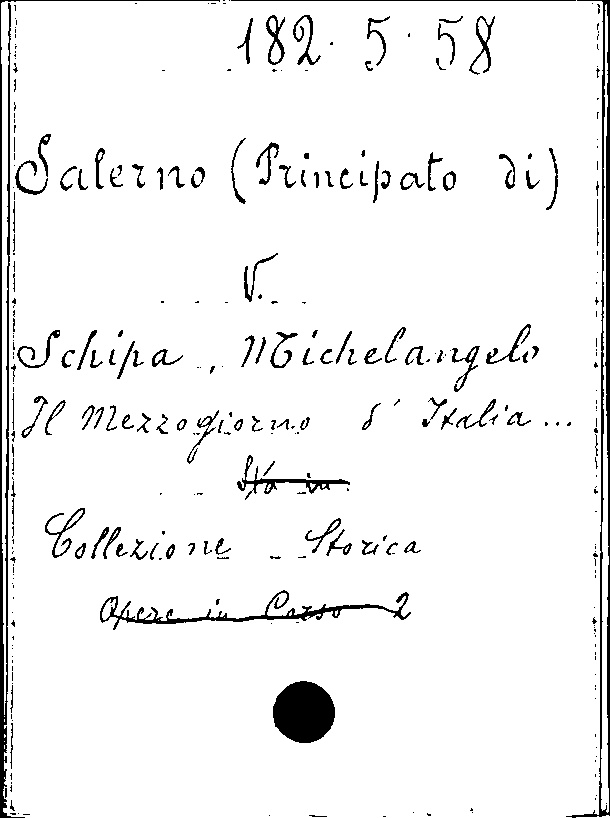 182. 5. 58
Salerno (Principato di)
V.
Schipa, Michelangelo
Il Mezzogiorno d'Italia...
Sta in:
Collezione Storica
Opere in Corso 2